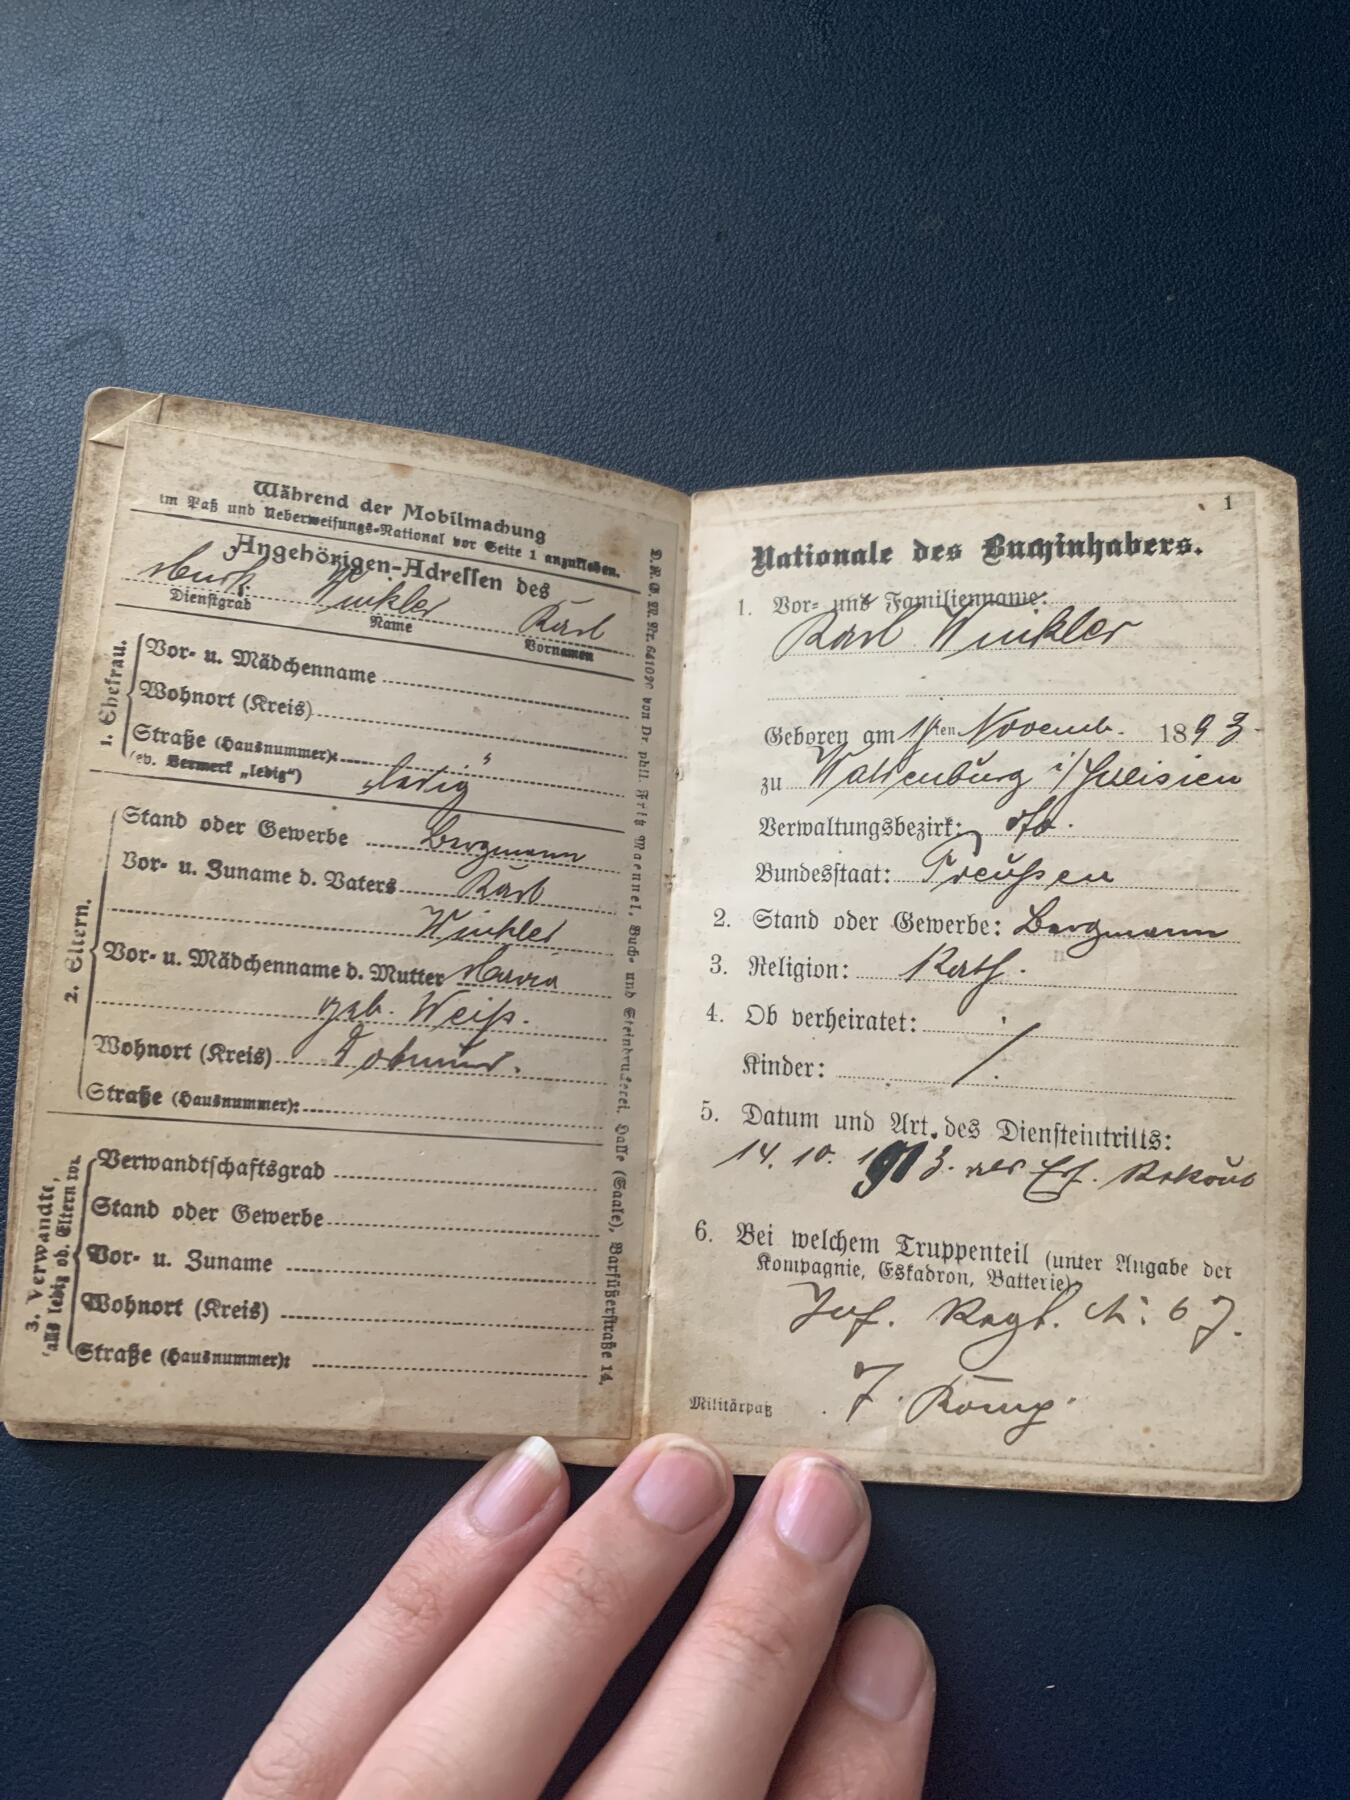 Während der Mobilmachung
im Paß und Ueberweisungs-National vor Seite 1 anzukleben.
Angehörigen-Adressen des
Musk. Winkler Karl
Dienstgrad Name Vornamen
1. Ehefrau.
Vor- u. Mädchenname
Wohnort (Kreis)
Straße (Hausnummer):
(ev. Vermerk „ledig“) ledig
2. Eltern.
Stand oder Gewerbe Bergmann
Vor- u. Zuname d. Vaters Karl
Winkler
Vor- u. Mädchenname d. Mutter Maria
geb. Weiß.
Wohnort (Kreis)
Straße (Hausnummer):
3. Verwandte,
falls ledig od. Eltern tot.
Verwandtschaftsgrad
Stand oder Gewerbe
Vor- u. Zuname
Wohnort (Kreis)
Straße (Hausnummer):
D. R. G. M. Nr. 641020 von Dr. phil. Fritz Maennel, Buch- und Steindruckerei, Halle (Saale), Barfüßerstraße 14.
1
Nationale des Buchinhabers.
1. Vor- und Familienname:
Karl Winkler
Geboren am ten Novemb. 1893
zu Waldenburg i/Schlesien
Verwaltungsbezirk: do.
Bundesstaat: Preußen
2. Stand oder Gewerbe: Bergmann
3. Religion: Kath.
4. Ob verheiratet:
Kinder: /
5. Datum und Art des Diensteintritts:
14. 10. 1913. als Ers. Rekrut
6. Bei welchem Truppenteil (unter Angabe der
Kompagnie, Eskadron, Batterie):
Inf. Regt. N: 67.
7. Komp.
Militärpaß